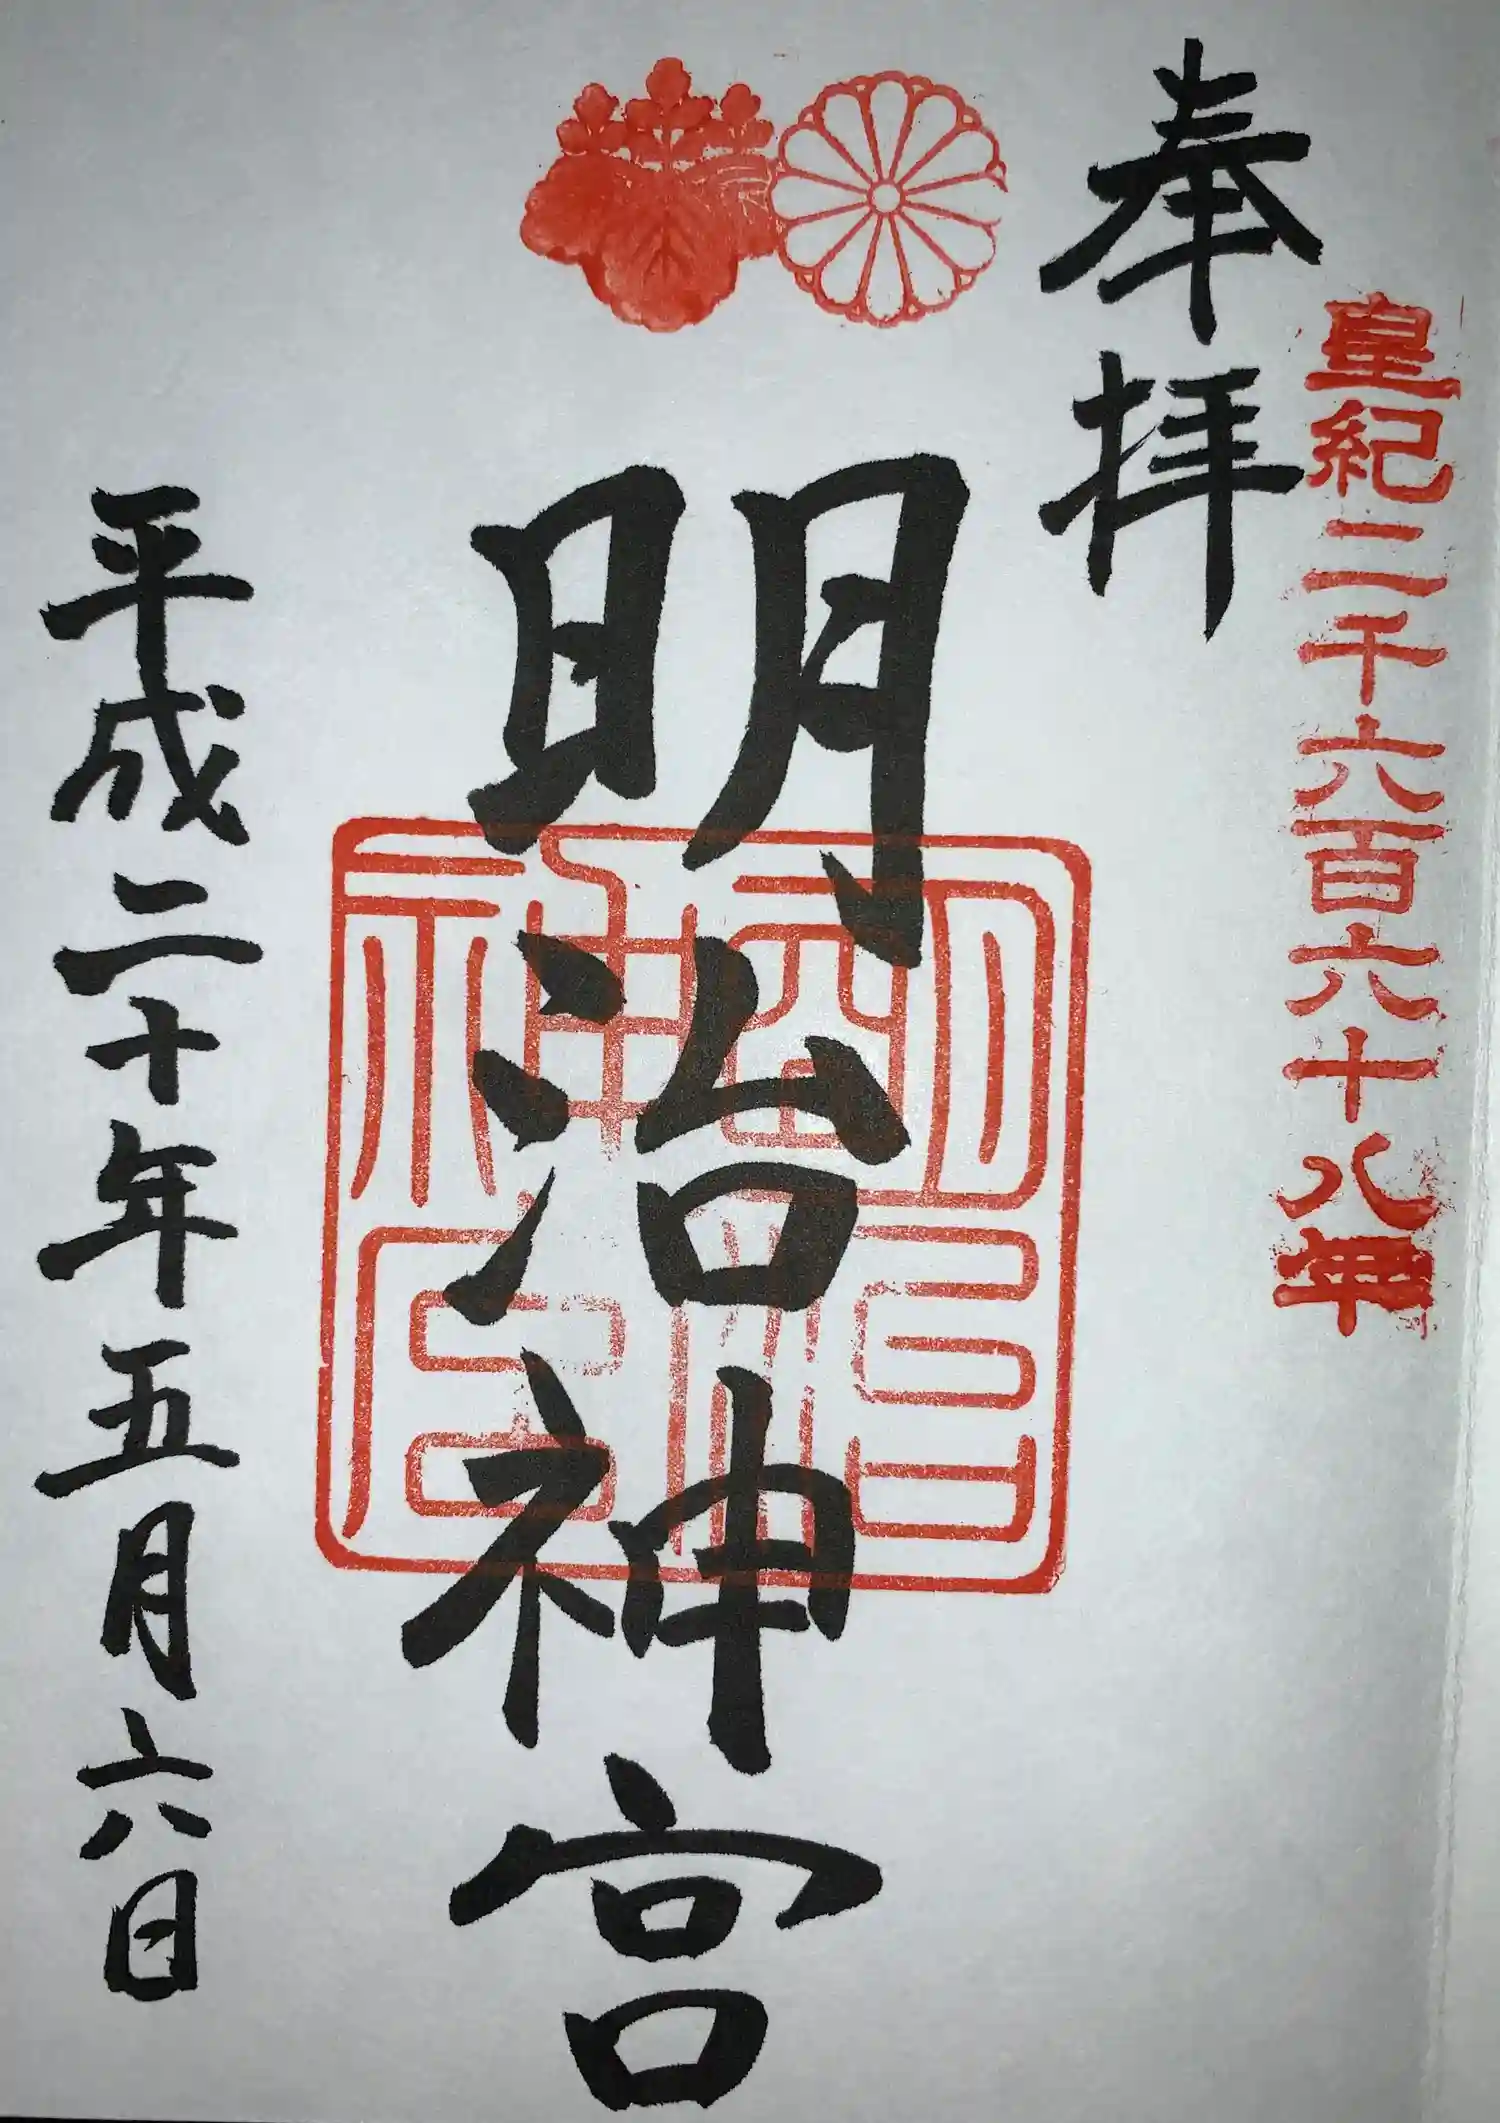 皇紀二千六百六十八年
奉拝
明治神宮
平成二十年五月六日